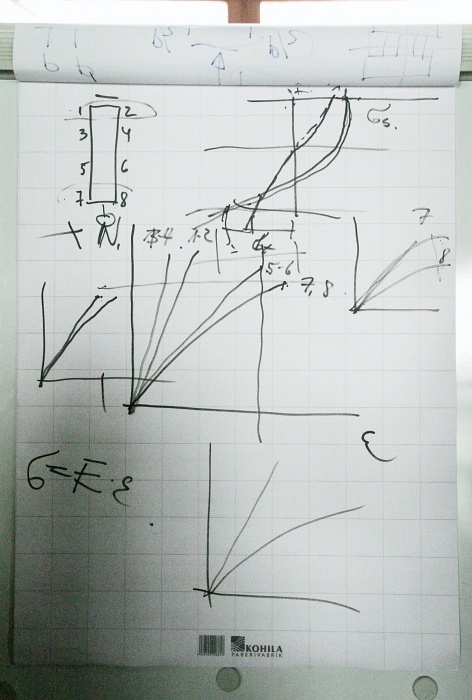 1 2
3 4
5 6
7 8
N,
3-4 1-2
5-6
7,8
7
8
Gs.
ε
σ=E·ε
KOHILA
PABERIVABRIK